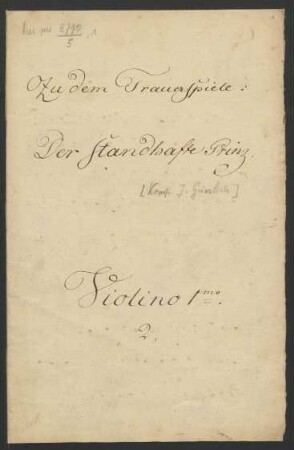 Mus. ms. 8790/5, 1
Zu dem Trauerspiele:
Der standhafte Prinz.
[Komp. J.
Violino 1mo.
2.